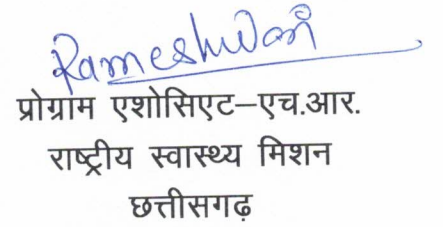 Rameshwari
प्रोग्राम एशोसिएट–एच.आर.
राष्ट्रीय स्वास्थ्य मिशन
छत्तीसगढ़